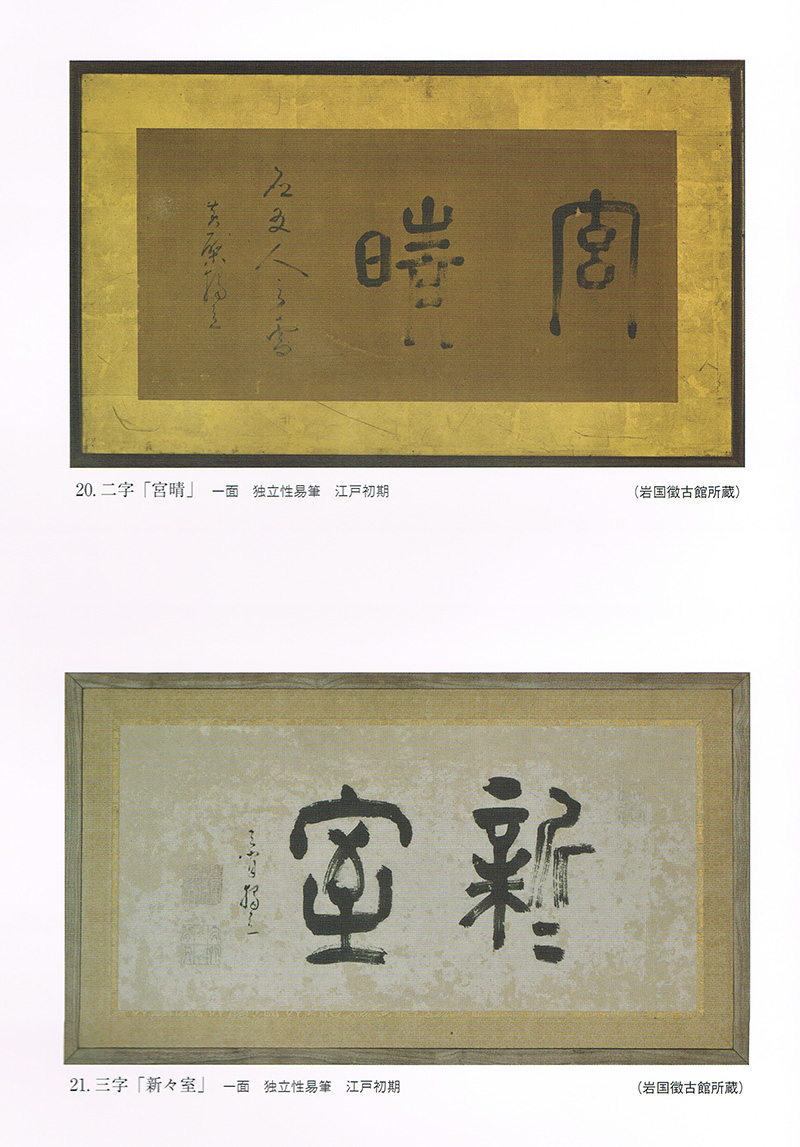 宮晴
為友人之書
20. 二字「宮晴」　一面　独立性易筆　江戸初期
（岩国徴古館所蔵）
新々室
21. 三字「新々室」　一面　独立性易筆　江戸初期
（岩国徴古館所蔵）